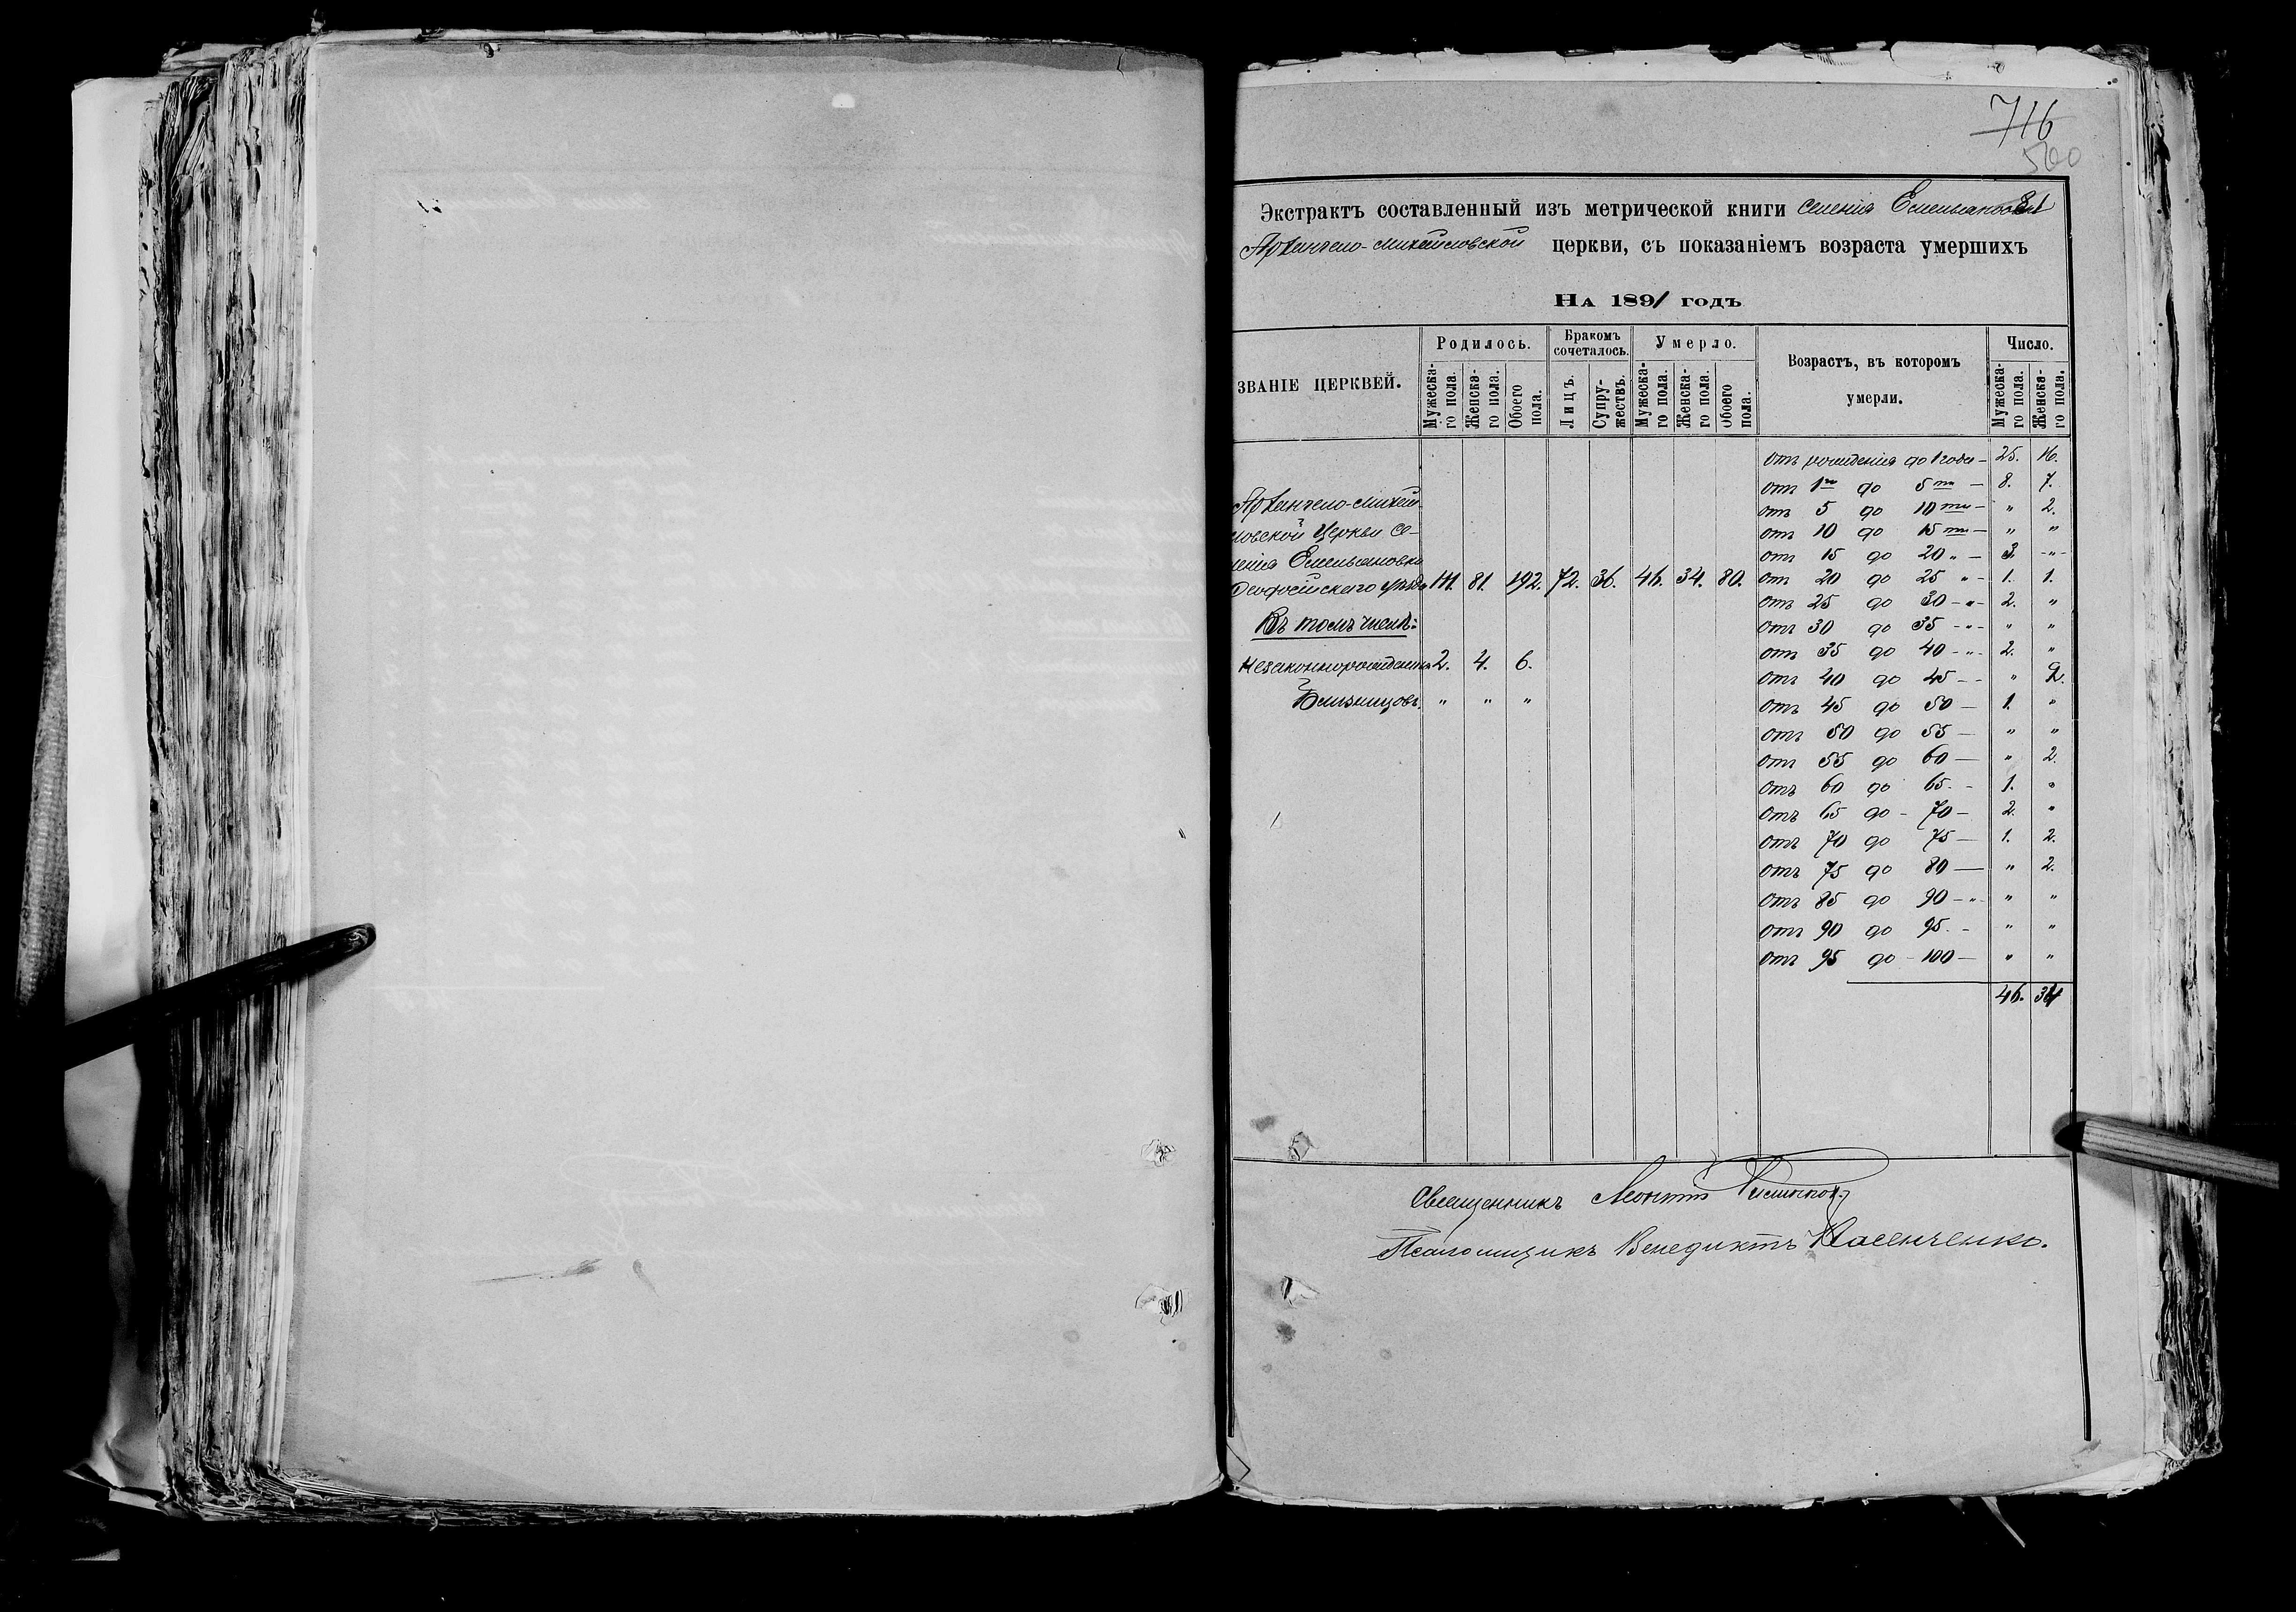 716
560
Экстрактъ составленный изъ метрической книги селенія Емельяновки
Архангело-Михайловской церкви, съ показаніемъ возраста умершихъ
На 1891 годъ
ЗВАНІЕ ЦЕРКВЕЙ. Родилось. Бракомъ сочеталось. Умерло. Возрастъ, въ котором умерли. Число.
Мужеска-го пола. Женска-го пола. Обоего пола. Лицъ. Супру-жествъ. Мужеска-го пола. Женска-го пола. Обоего пола. Мужеска-го пола. Женска-го пола.
отъ рожденія до 1 года — 25. 16.
отъ 1го до 5ти — 8. 7.
Архангело-Михай-
отъ 5 до 10ти — " 2.
ловской Церкви се-
отъ 10 до 15ти — " "
ленія Емельяновки
отъ 15 до 20 " — 3. -"-
Ѳеодосійскаго уѣзда 111. 81. 192. 72. 36. 46. 34. 80. отъ 20 до 25 " - 1. 1.
отъ 25 до 30 -"- 2. "
Въ томъ числѣ:
отъ 30 до 35 -"- " "
отъ 35 до 40 -"- 2. "
незаконнорожденныхъ 2. 4. 6.
отъ 40 до 45 - - " 2.
Близнецовъ. " " "
отъ 45 до 50 — 1. "
отъ 50 до 55 — " "
отъ 55 до 60 — " 2.
отъ 60 до 65. - 1. "
отъ 65 до - 70 - 2. "
отъ 70 до 75 — 1. 2.
отъ 75 до 80 — " 2.
отъ 85 до 90 -"- " "
отъ 90 до 95. - " "
отъ 95 до - 100 — " "
46. 34
Священникъ Леонтій
Псаломщикъ Венедиктъ Васенченко.